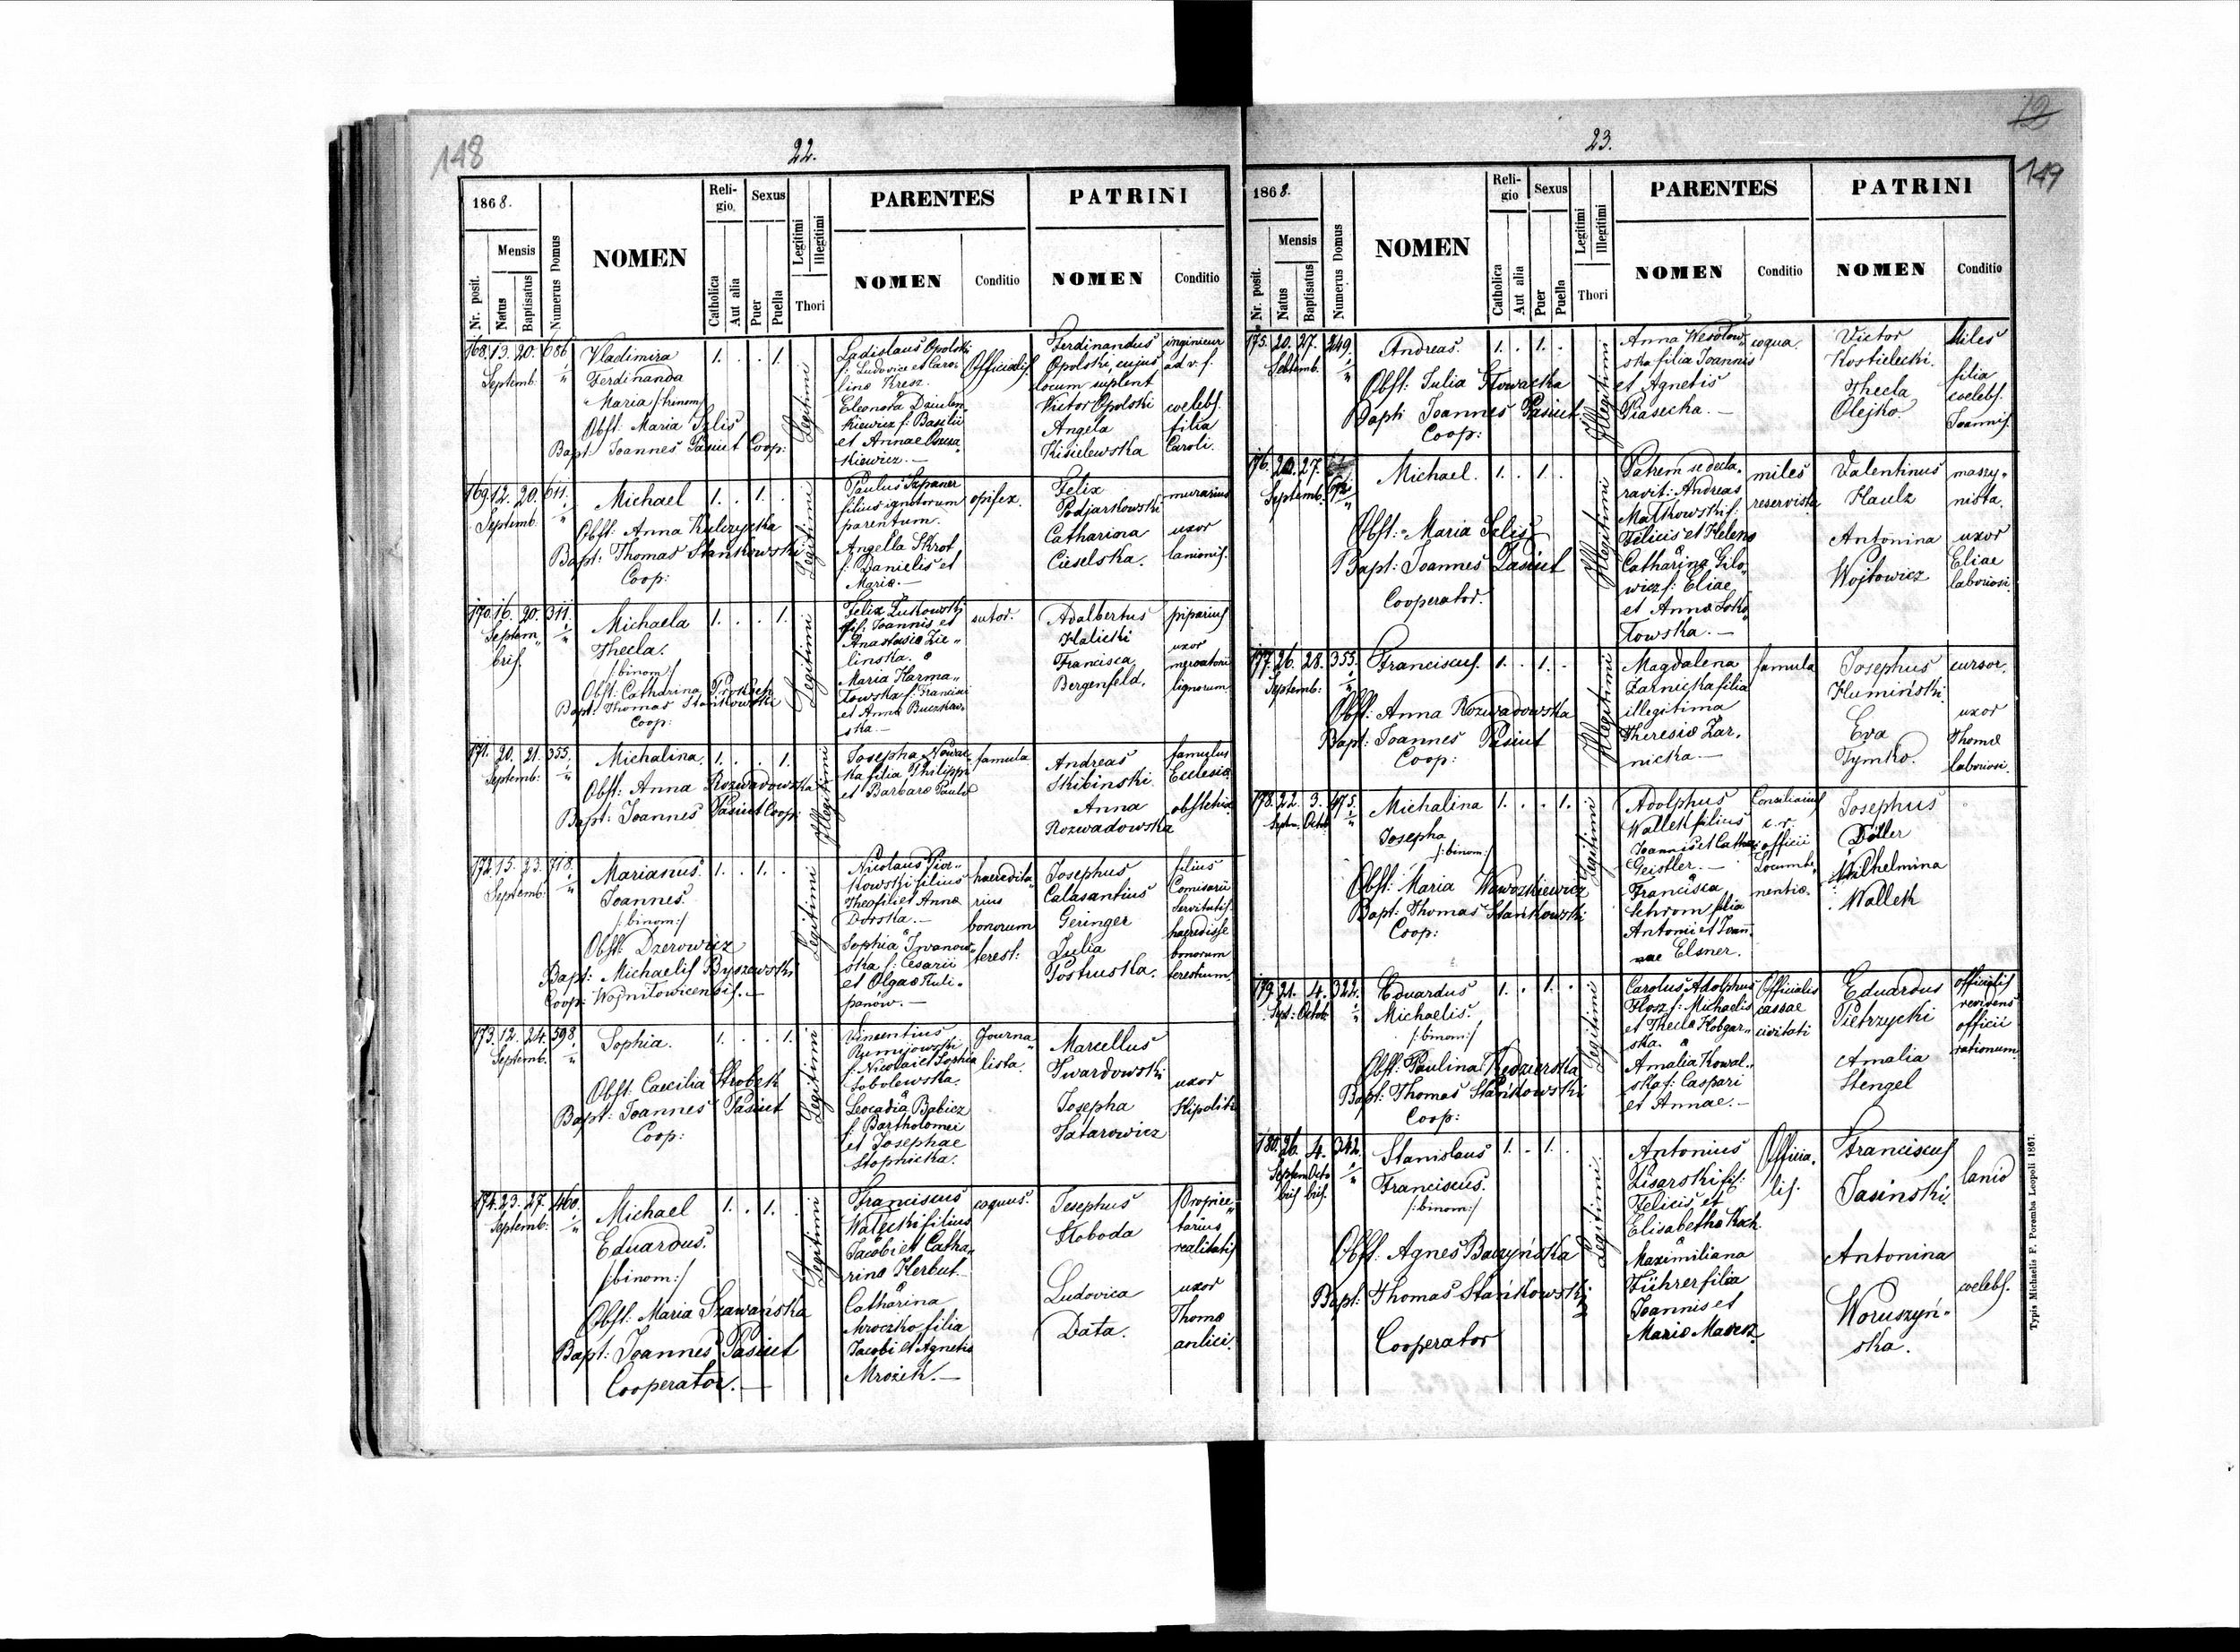 148
22.
1868.
Nr. posit.
Mensis
Natus
Baptisatus
Numerus Domus
NOMEN
Religio.
Catholica
Aut alia
Sexus
Puer
Puella
Legitimi
Illegitimi
Thori
PARENTES
NOMEN
Conditio
PATRINI
NOMEN
Conditio
168. 13. 20. 686
Septemb.
Vladimira
Ferdinanda
Maria /:trinom:/
Obst: Maria Szlis
Bapt: Joannes Pasiut Coop:
1. . . 1.
Legitimi
Ladislaus Opolski
f: Ludovice et Caro-
linæ Kresz.
Eleonora Dziulen-
kiewicz f: Basilii
et Annae
kiewicz.—
Officialis
Ferdinandus
Opolski, cujus
locum suplent
Victor Opolski
Angela
Kisielewska
ingénieur
ad v. f.
coelebs.
filia
Caroli.
169. 12. 20. 611.
Septemb.
Michael
Obst: Anna Kulczycka
Bapt: Thomas Stankowski
Coop:
1. . 1. .
Legitimi
Paulus Szpaner
filius ignotorum
parentum.
Angella Skrot
f: Danielis et
Mariæ.—
opifex.
Felix
Podjarkowski
Catharina
Cieselska.
murarius
uxor
lanionis.
170. 16. 20. 311.
Septem„
bris.
Michaela
Thecla.
/:binom:/
Obst: Catharina
Bapt: Thomas Stankowski
Coop:
1. . . 1.
Legitimi
Felix Żukowski
fil: Joannis et
Anastasiæ Zie„
linska.
Maria Harma„
towska f: Francisci
et Annæ Buczkow„
ska.—
sutor.
Adalbertus
Halicki
Francisca
Bergenfeld.
piparius
uxor
mercatoris
lignorum.
171. 20. 21. 355.
Septemb:
Michalina.
Obst: Anna Rozwadowska
Bapt: Joannes Pasiut Coop:
1. . . 1.
Illegitimi
Josepha Nowac„
ka filia Philippi
et Barbaræ Paulo
famula
Andreas
Skibinski
Anna
Rozwadowska
famulus
Ecclesiæ
obstetrix
172. 15. 23. 718.
Septemb:
Marianus
Joannes.
/:binom:/
Obst: Dzerowicz
Bapt: Michaelis Byszewski
Coop: Wojnitowicensis.—
1. . 1. .
Legitimi
Nicolaus Pior„
kowski filius
Theofili et Annæ
Dorska.—
Sophia Iwanow„
ska f: Cesarii
et Olgæ Kuli„
panów.—
haeredita„
rius
bonorum
terest:
Josephus
Calasantius
Geringer
Julia
Postruska.
filius
Comisarii
Servitutis
haeredisse
bonorum
terestrium.
173. 12. 24. 598.
Septemb.
Sophia.
Obst: Caecilia Skobek
Bapt: Joannes Pasiut
Coop:
1. . . 1.
Legitimi
Vincentius
Rumijowski
f: Nicolai et Sophia
Sobolewska.
Leocadia Babicz
f: Bartholomei
et Josephae
Stopnicka.
Journa„
lista.
Marcellus
Twardowski
Josepha
Tatarowicz
uxor
Hipoliti
174. 23. 27. 460.
Septemb:
Michael
Eduardus.
/:binom:/
Obst: Maria Szawańska
Bapt: Joannes Pasiut
Cooperator.—
1. . 1. .
Legitimi
Franciscus
Watęcki filius
Jacobi et Catha„
rinæ Herbut.
Catharina
Mroczko filia
Jacobi et Agnetis
Mrozek.—
coquus.
Josephus
Skoboda
Ludovica
Data.
Proprie„
tarius
realitatis
uxor
Thomæ
anlici.
12
149
23.
1868.
Nr. posit.
Mensis
Natus
Baptisatus
Numerus Domus
NOMEN
Religio
Catholica
Aut alia
Sexus
Puer
Puella
Legitimi
Illegitimi
Thori
PARENTES
NOMEN
Conditio
PATRINI
NOMEN
Conditio
175. 20. 27. 249.
Septemb.
Andreas.
Obst: Julia Głowacka
Bapt: Joannes Pasiut
Coop:
1. . 1. .
Illegitimi
Anna Wesołow„
ska filia Joannis
et Agnetis
Piasecka.—
coqua.
Victor
Kostielecki.
Thecla
Olejko.
Miles
filia
coelebs.
Joannis.
176. 20. 27. 672
Septemb.
Michael.
Obst: Maria Szlis
Bapt: Joannes Pasiut
Cooperator.
1. . 1. .
Illegitimi
Patrem se decla„
ravit: Andreas
Małkowski f:
Felicis et Helenæ
Catharina Gilo„
wicz f: Eliae
et Annæ Soko„
łowska.—
miles
reservista
Valentinus
Haulz
Antonina
Wojtowicz
maszy„
nista.
uxor
Eliae
laboriosi.
177. 26. 28. 355.
Septemb:
Franciscus.
Obst: Anna Rozwadowska
Bapt: Joannes Pasiut
Coop:
1. . 1. .
Illegitimi
Magdalena
Żarnicka filia
illegitima
Theresiæ Żar„
nicka.—
famula
Josephus
Humiński
Eva
Tymko.
cursor.
uxor
Thomæ
laboriosi.
178. 22. 3. 475.
Septem. Octob.
Michalina
Josepha
/:binom:/
Obst: Maria Wawoszkiewicz
Bapt: Thomas Stankowski
Coop:
1. . . 1.
Legitimi
Adolphus
Wallek filius
Joannis et Cathar:
Geistler.—
Francisca
Schrom filia
Antonii et Joan„
nae Elsner.
Consiliarius
c. r.
officii
Locumte„
nentiæ.
Josephus
Döller
Wilhelmina
Wallek
179. 21. 4. 322.
Sept: Octob:
Eduardus
Michaelis.
/:binom:/
Obst: Paulina Kędzierska
Bapt: Thomas Stańkowski
Coop:
1. . 1. .
Legitimi
Carolus Adolphus
Hosz f: Michaelis
et Theclæ Hobgar„
ska.
Amalia Kowal„
ska f: Caspari
et Annae.—
Officialis
cassae
civitati
Eduardus
Pietrzycki
Amalia
Stengel
officialis
revidens
officii
rationum
180. 26. 4. 342.
Septem Octo
bris bris.
Stanislaus
Franciscus.
/:binom:/
Obst: Agnes Baczyńska
Bapt: Thomas Stańkowski
Cooperator
1. . 1. .
Legitimi.
Antonius
Pisarski fil:
Felicis et
Elisabethæ Koch.
Maximiliana
Führer filia
Joannis et
Mariæ Maresz.
Officia„
lis.
Franciscus
Jasinski
Antonina
Woruszyń„
ska.
lanio
coelebs.
Typis Michaelis F. Poremba Leopoli 1867.